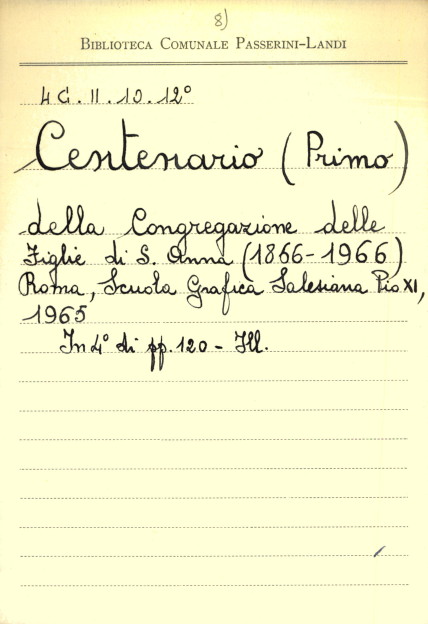 8)
BIBLIOTECA COMUNALE PASSERINI-LANDI
4 G. II. 10. 12°
Centenario (Primo)
della Congregazione delle
Figlie di S. Anna (1866-1966)
Roma, Scuola Grafica Salesiana Pio XI,
1965
In 4° di pp. 120 - Ill.